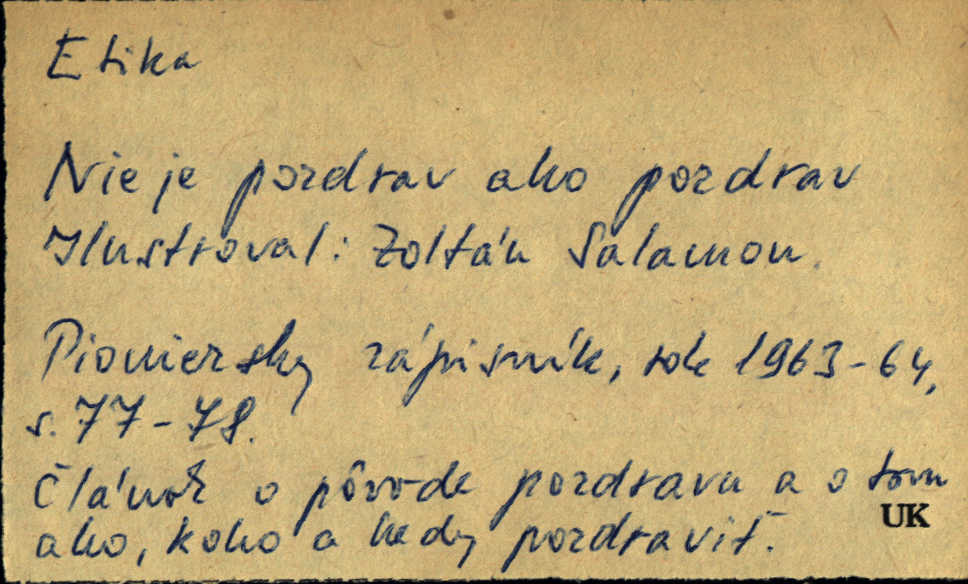 Etika
Nie je pozdrav ako pozdrav
Ilustroval: Zoltán Salamon.
Pioniersky zápisník, rok 1963-64,
s. 77-78.
Článok o pôvode pozdravu a o tom
UK
ako, koho a kedy pozdraviť.